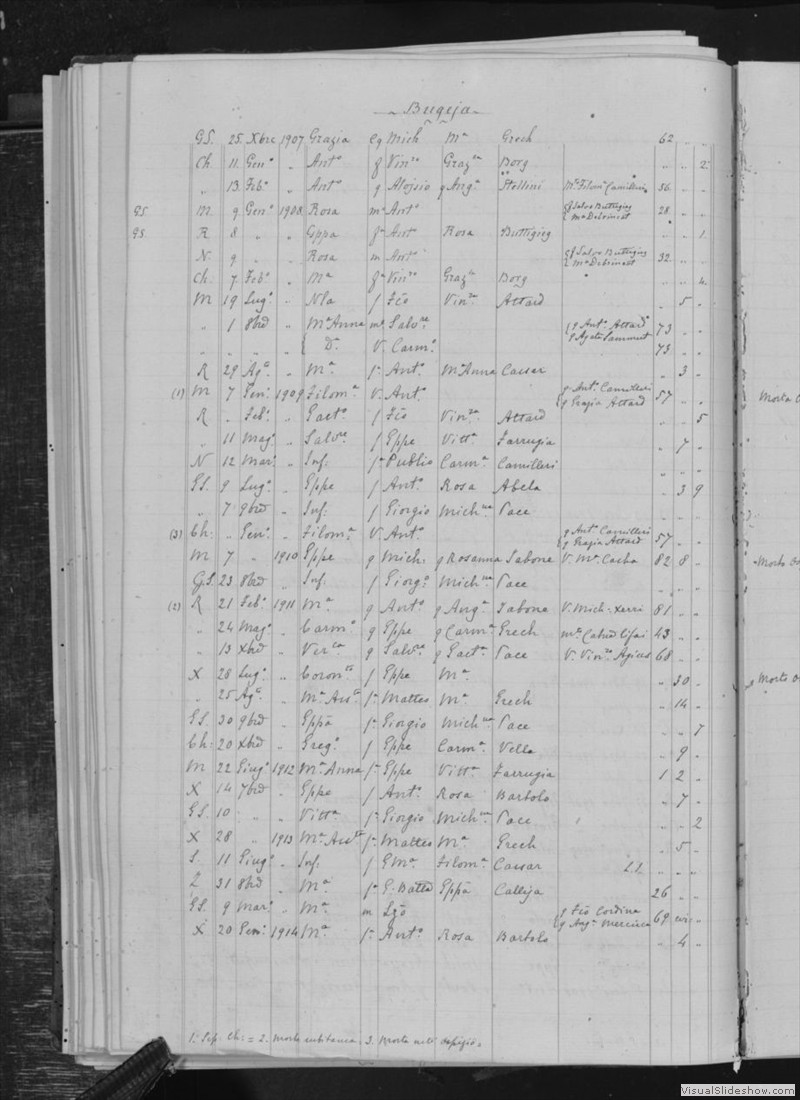 Bugeja
GS. 25 Xbre 1907 Grazia eq Mich Mª Grech 62 " "
Ch. 11 Genº " Antº f Vinzº Grazª Borg " " 2
" 13 Febº " Antº q Alojsio q Angª Stellini Mª Filomª Camilleri 36 " "
GS. M. 9 Genº 1908 Rosa mª Antº q Salvo Buttigieg 28 " "
q Mª Debrincat
GS R 8 " " Gppa fª Antº Rosa Buttigieg " " 1
N. 9 " " Rosa m Antº qf Salvo Buttigieg 32 " "
q Mª Debrincat
Ch. 7 Febº " Mª fª Vinzº Grazª Borg " " 4
M 19 Lugº " Nla f Fcõ Vinzª Attard " 5 "
" 1 8bre " Mª Anna mª Salvre q Antº Attard 73 " "
q Agata Sammut
" " " " Dª V. Carmº 73 " "
R 29 Agº " Mª fª Antº Mª Anna Caesar " 3 "
(1) M 7 Genº 1909 Filomª V. Antº q Antº Camilleri 57 " " Morta
q Grazia Attard
R " Febº " Gaetº f Fcõ Vinzª Attard " " 5
" 11 Magº " Salvre f Gppe Vittª Farrugia " 7 "
N 12 Marº " Inf. fª Publio Carmª Camilleri " " "
GS. 9 Lugº " Gppe f Antº Rosa Abela " 3 9
" 7 9bre " Inf. f Giorgio Michna Pace " " "
(3) Ch: " Genº " Filomª V. Antº q Antº Camilleri 57 " "
q Grazia Attard
M 7 " 1910 Gppe q Mich: q Rosanna Sabone V. Mª 82 8 " Morto
G.S. 23 8bre " Inf. f Giorgº Michna Pace " " "
(2) R 21 Febº 1911 Mª q Antº q Angª Sabone V. Mich: Xerri 81 " "
" 24 Magº " Carmº q Gppe q Carmª Grech mº 43 " "
" 13 Xbre " q Salvre q Gaetª Pace V. Vinzº Agius 68 " "
X 28 Lugº " f Gppe Mª " 30 " Morto
" 25 Agº " Mª Assª fª Matteo Mª Grech " 14 "
GS. 30 9bre " Gppa fª Giorgio Michna Pace " " 7
Ch: 20 Xbre " Gregº f Gppe Carmª Vella " 9 "
M 22 Giugº 1912 Mª Anna fª Gppe Vittª Farrugia 1 2 "
X 14 7bre " Gppe f Antº Rosa Bartolo " 7 "
GS. 10 " " Vittª fª Giorgio Michna Pace " " 2
X 28 " 1913 Mª fª Matteo Mª Grech " 5 "
S. 11 Giugº " Inf. f Filomª Caesar " " "
Z 31 8bre " Mª fª G. Batta Gppa Calleja 26 " "
GS. 9 Marº " Mª m q Fcõ Cordina 69 "
q Angª Mercieca
X 20 Genº 1914 Mª fª Antº Rosa Bartolo " 4 "
1. Sep. Ch: = 2. Morte subitanea. 3. Morta nell'
VisualSlideshow.com